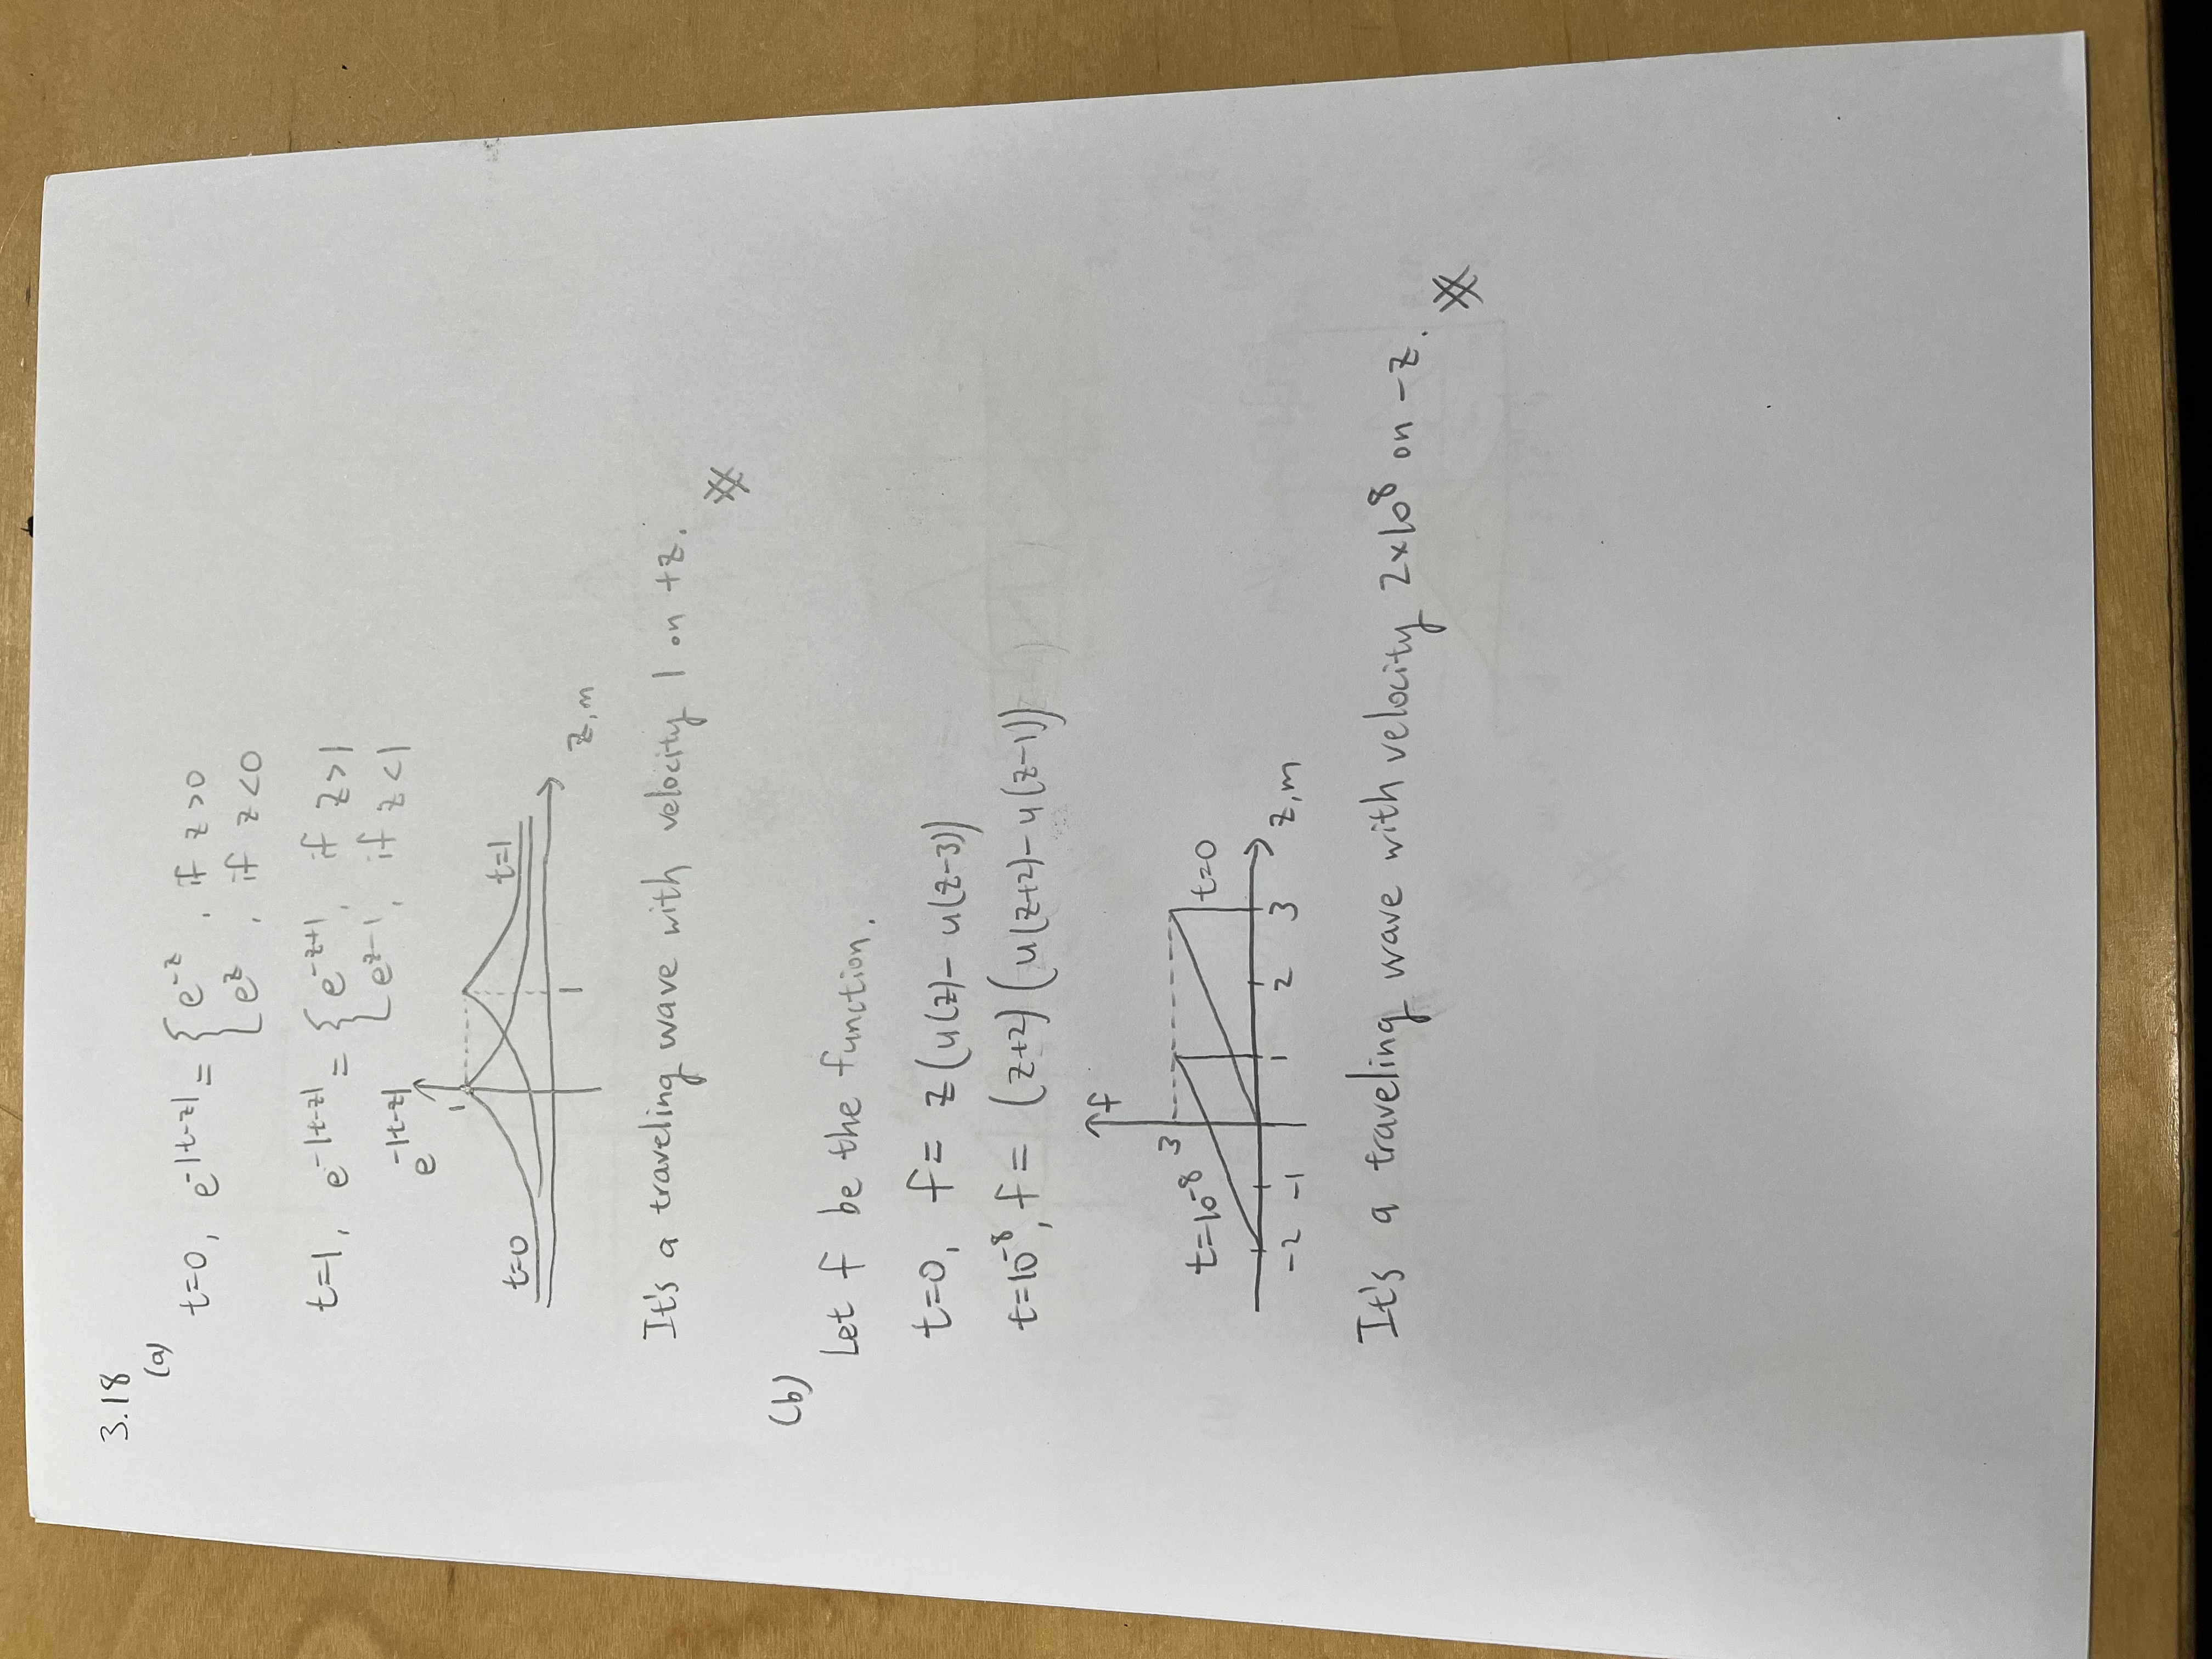 3.18
(a)
t=0, e^{-|t-z|} = { e^{-z}, if z>0
e^{z}, if z<0
t=1, e^{-|t-z|} = { e^{-z+1}, if z>1
e^{z-1}, if z<1
e^{-|t-z|}
1
t=0
t=1
1
z,m
It's a traveling wave with velocity 1 on +z.
(b)
Let f be the function.
t=0, f= z(u(z)-u(z-3))
t=10^{-8}, f= (z+2)(u(z+2)-u(z-1))
f
3
t=10^{-8}
t=0
-2 -1 1 2 3 z,m
It's a traveling wave with velocity 2×10^8 on -z.